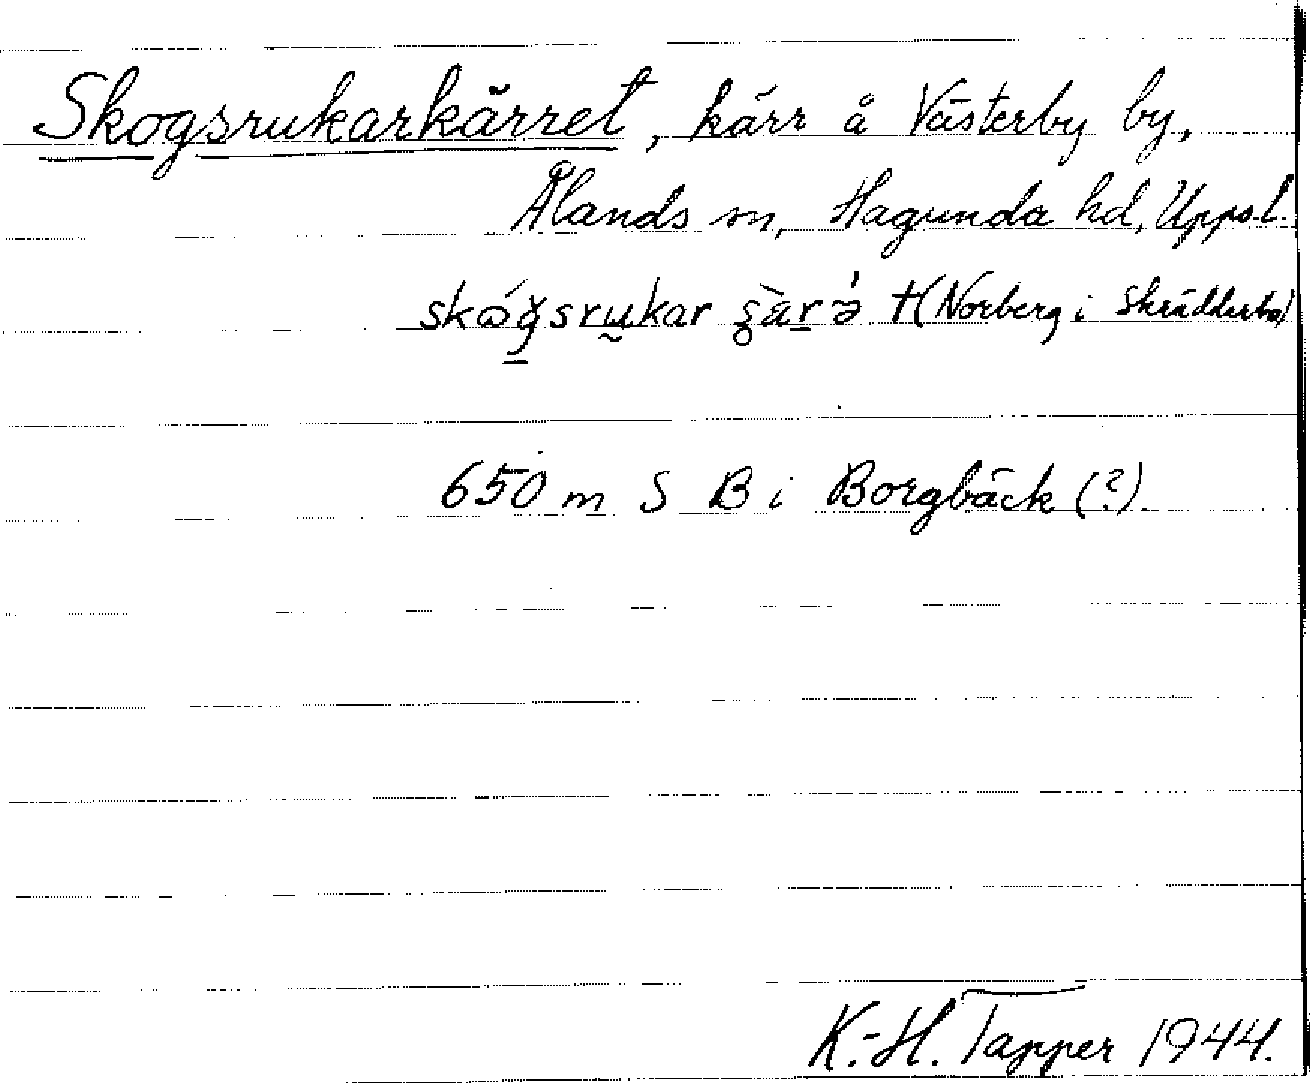 Skogsrukarkärret, kärr å Västerby by,
Ålands sn, Hagunda hd, Uppsl.
skógsrukar i Skrädderbo)
650 m S B i Borgbäck (?).
K.-H. Tapper 1944.